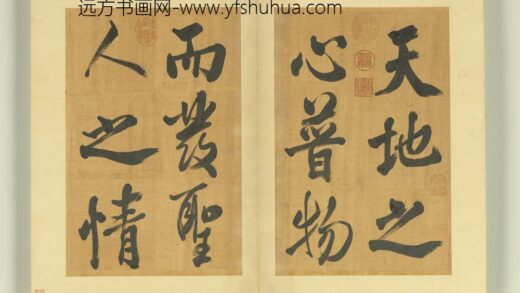 远方书画网-www.yfshuhua.com
天地之
心普物
而發聖
人之情